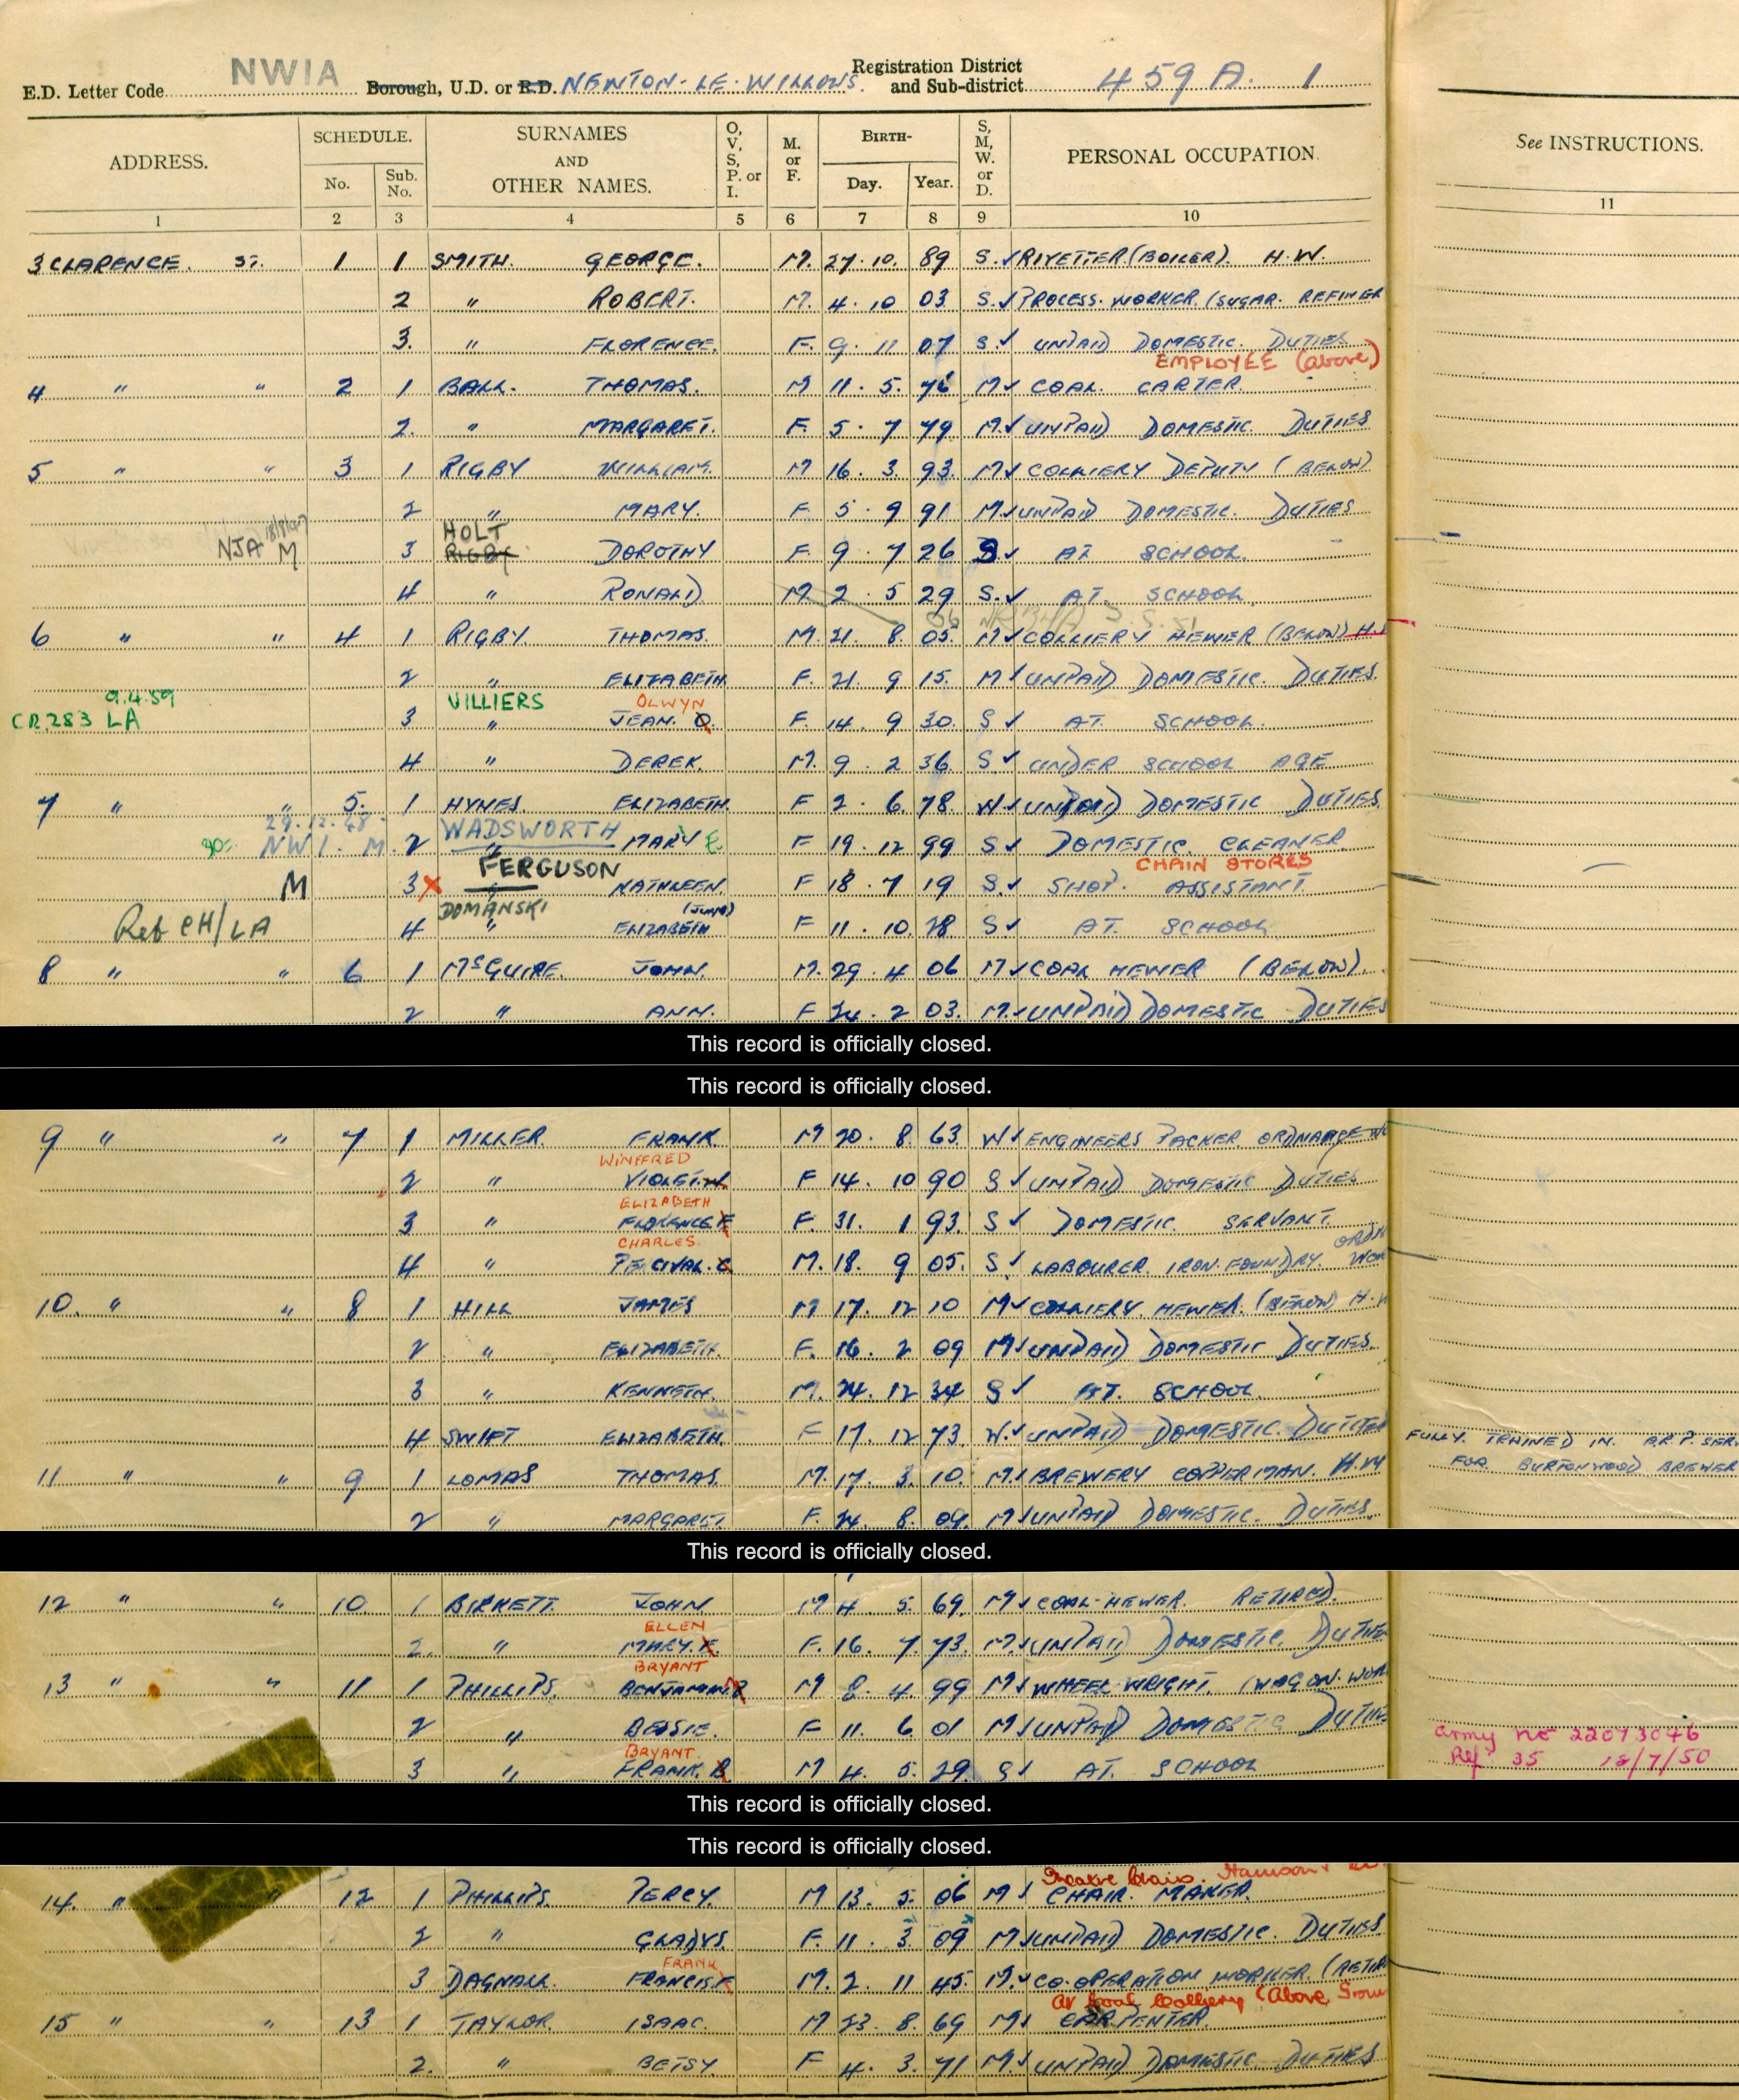 E.D. Letter Code NWIA Borough, U.D. or R.D. NEWTON-LE-WILLOWS. Registration District and Sub-district 459 A. 1
ADDRESS. SCHEDULE. No. Sub. No. SURNAMES AND OTHER NAMES. O, V, S, P. or I. M. or F. BIRTH- Day. Year. S, M, W. or D. PERSONAL OCCUPATION. See INSTRUCTIONS.
1 2 3 4 5 6 7 8 9 10 11
3 CLARENCE. ST. 1 1 SMITH. GEORGE. M. 27.10. 89 S. ✓ RIVETTER. (BOILER). H.W.
2 " ROBERT. M. 4.10 03 S. ✓ PROCESS. WORKER. (SUGAR. REFINER
3. " FLORENCE. F. 9.11 07 S. ✓ UNPAID DOMESTIC. DUTIES
EMPLOYEE (above)
4 " " 2 1 BALL. THOMAS. M 11.5. 76 M ✓ COAL. CARTER.
2. " MARGARET. F. 5.7 79 M. ✓ UNPAID DOMESTIC. DUTIES
5 " " 3 1 RIGBY WILLIAM. M 16.3. 93. M ✓ COLLIERY DEPUTY (BELOW)
2 " MARY. F. 5.9 91 M. ✓ UNPAID DOMESTIC. DUTIES
HOLT
NJA M 3 RIGBY DOROTHY F. 9.7 26 S ✓ AT SCHOOL.
4 " RONALD. M. 2.5 29 S. ✓ AT. SCHOOL.
6 " " 4 1 RIGBY. THOMAS. M. 21.8. 05. M ✓ COLLIERY HEWER (BELOW) H.
2 " ELIZABETH F. 21.9 15. M ✓ UNPAID DOMESTIC. DUTIES.
9.4.59 VILLIERS OLWYN
CR283 LA 3 " JEAN. O. F. 14.9 30. S ✓ AT. SCHOOL.
4 " DEREK. M. 9.2 36. S ✓ UNDER SCHOOL AGE
7 " " 5. 1 HYNES. ELIZABETH. F 2.6. 78. W ✓ UNPAID DOMESTIC DUTIES.
29.12.48 WADSWORTH
NW1. M. 2 " MARY E F 19.12 99 S ✓ DOMESTIC CLEANER.
FERGUSON CHAIN STORES
M 3 X " KATHLEEN. F 18.7 19 S. ✓ SHOP. ASSISTANT.
DOMANSKI
Ref CH/LA 4 " ELIZABETH F 11.10. 28 S. ✓ AT. SCHOOL.
8 " " 6 1 McGUIRE. JOHN. M. 29.4 06 M ✓ COAL HEWER (BELOW).
2 " ANN. F 24.2 03. M. ✓ UNPAID DOMESTIC DUTIES
This record is officially closed.
This record is officially closed.
9 " " 7 1 MILLER. FRANK. M 20.8. 63. W ✓ ENGINEERS PACKER ORDNANCE
WINIFRED
2 " VIOLET W. F 14.10 90 S ✓ UNPAID DOMESTIC DUTIES
ELIZABETH
3 " FLORENCE. E F. 31.1 93. S ✓ DOMESTIC. SERVANT.
CHARLES.
4 " PERCIVAL. C M. 18.9 05. S ✓ LABOURER. IRON. FOUNDRY.
10. " " 8 1 HILL JAMES M 17.12 10 M ✓ COLLIERY. HEWER. (BELOW) H.
2 " ELIZABETH. F. 16.2 09 M ✓ UNPAID DOMESTIC DUTIES.
3 " KENNETH. M. 24.12 34 S ✓ AT. SCHOOL.
4 SWIFT ELIZABETH. F 17.12 73. W. ✓ UNPAID DOMESTIC. DUTIES FULLY. TRAINED IN. A.R.P. SER
11 " " 9 1 LOMAS THOMAS. M. 17.3. 10. M. ✓ BREWERY COPPERMAN. FOR BURTONWOOD BREWER
2 " MARGARET. F. 24.8. 09. M ✓ UNPAID DOMESTIC. DUTIES.
This record is officially closed.
12 " " 10. 1 BIRKETT. JOHN. M 4.5. 69. M ✓ COAL-HEWER. RETIRED.
ELLEN
2. " MARY. E. F. 16.7. 73. M. ✓ UNPAID DOMESTIC. DUTIES
BRYANT
13 " " 11 1 PHILLIPS. BENJAMIN. B M 8.4. 99 M ✓ WHEEL-WRIGHT. (WAGON. WOR
2 " BESSIE. F 11.6 01 M ✓ UNPAID DOMESTIC DUTIES Army no 22073046
BRYANT.
3 " FRANK. B M 4.5. 29. S ✓ AT. SCHOOL Ref 35 18/7/50
This record is officially closed.
This record is officially closed.
14. " 12 1 PHILLIPS. PERCY. M 13.5. 06 M ✓ CHAIR. MAKER.
2 " GLADYS. F. 11.3 09 M ✓ UNPAID DOMESTIC. DUTIES
FRANK
3 DAGNALL. FRANCIS. F M. 2.11 45. M. ✓ CO-OPERATION WORKER. (RETIR
At Coal Colliery (Above Groun
15 " " 13 1 TAYLOR. ISAAC. M 23.8. 69 M ✓ CARPENTER.
2. " BETSY. F 4.3. 71 M. ✓ UNPAID DOMESTIC DUTIES